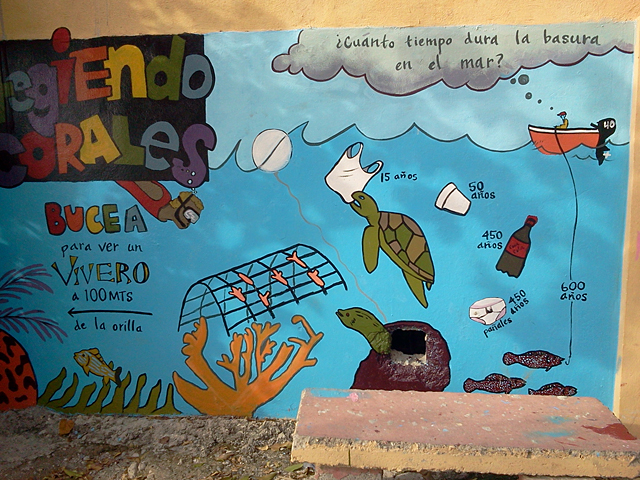 egiendo
CORALES
¿Cuánto tiempo dura la basura
en el mar?
40
15 años
50
años
450
años
600
años
450
años
pañales
BUCEA
para ver un
VIVERO
a 100 MTS
de la orilla